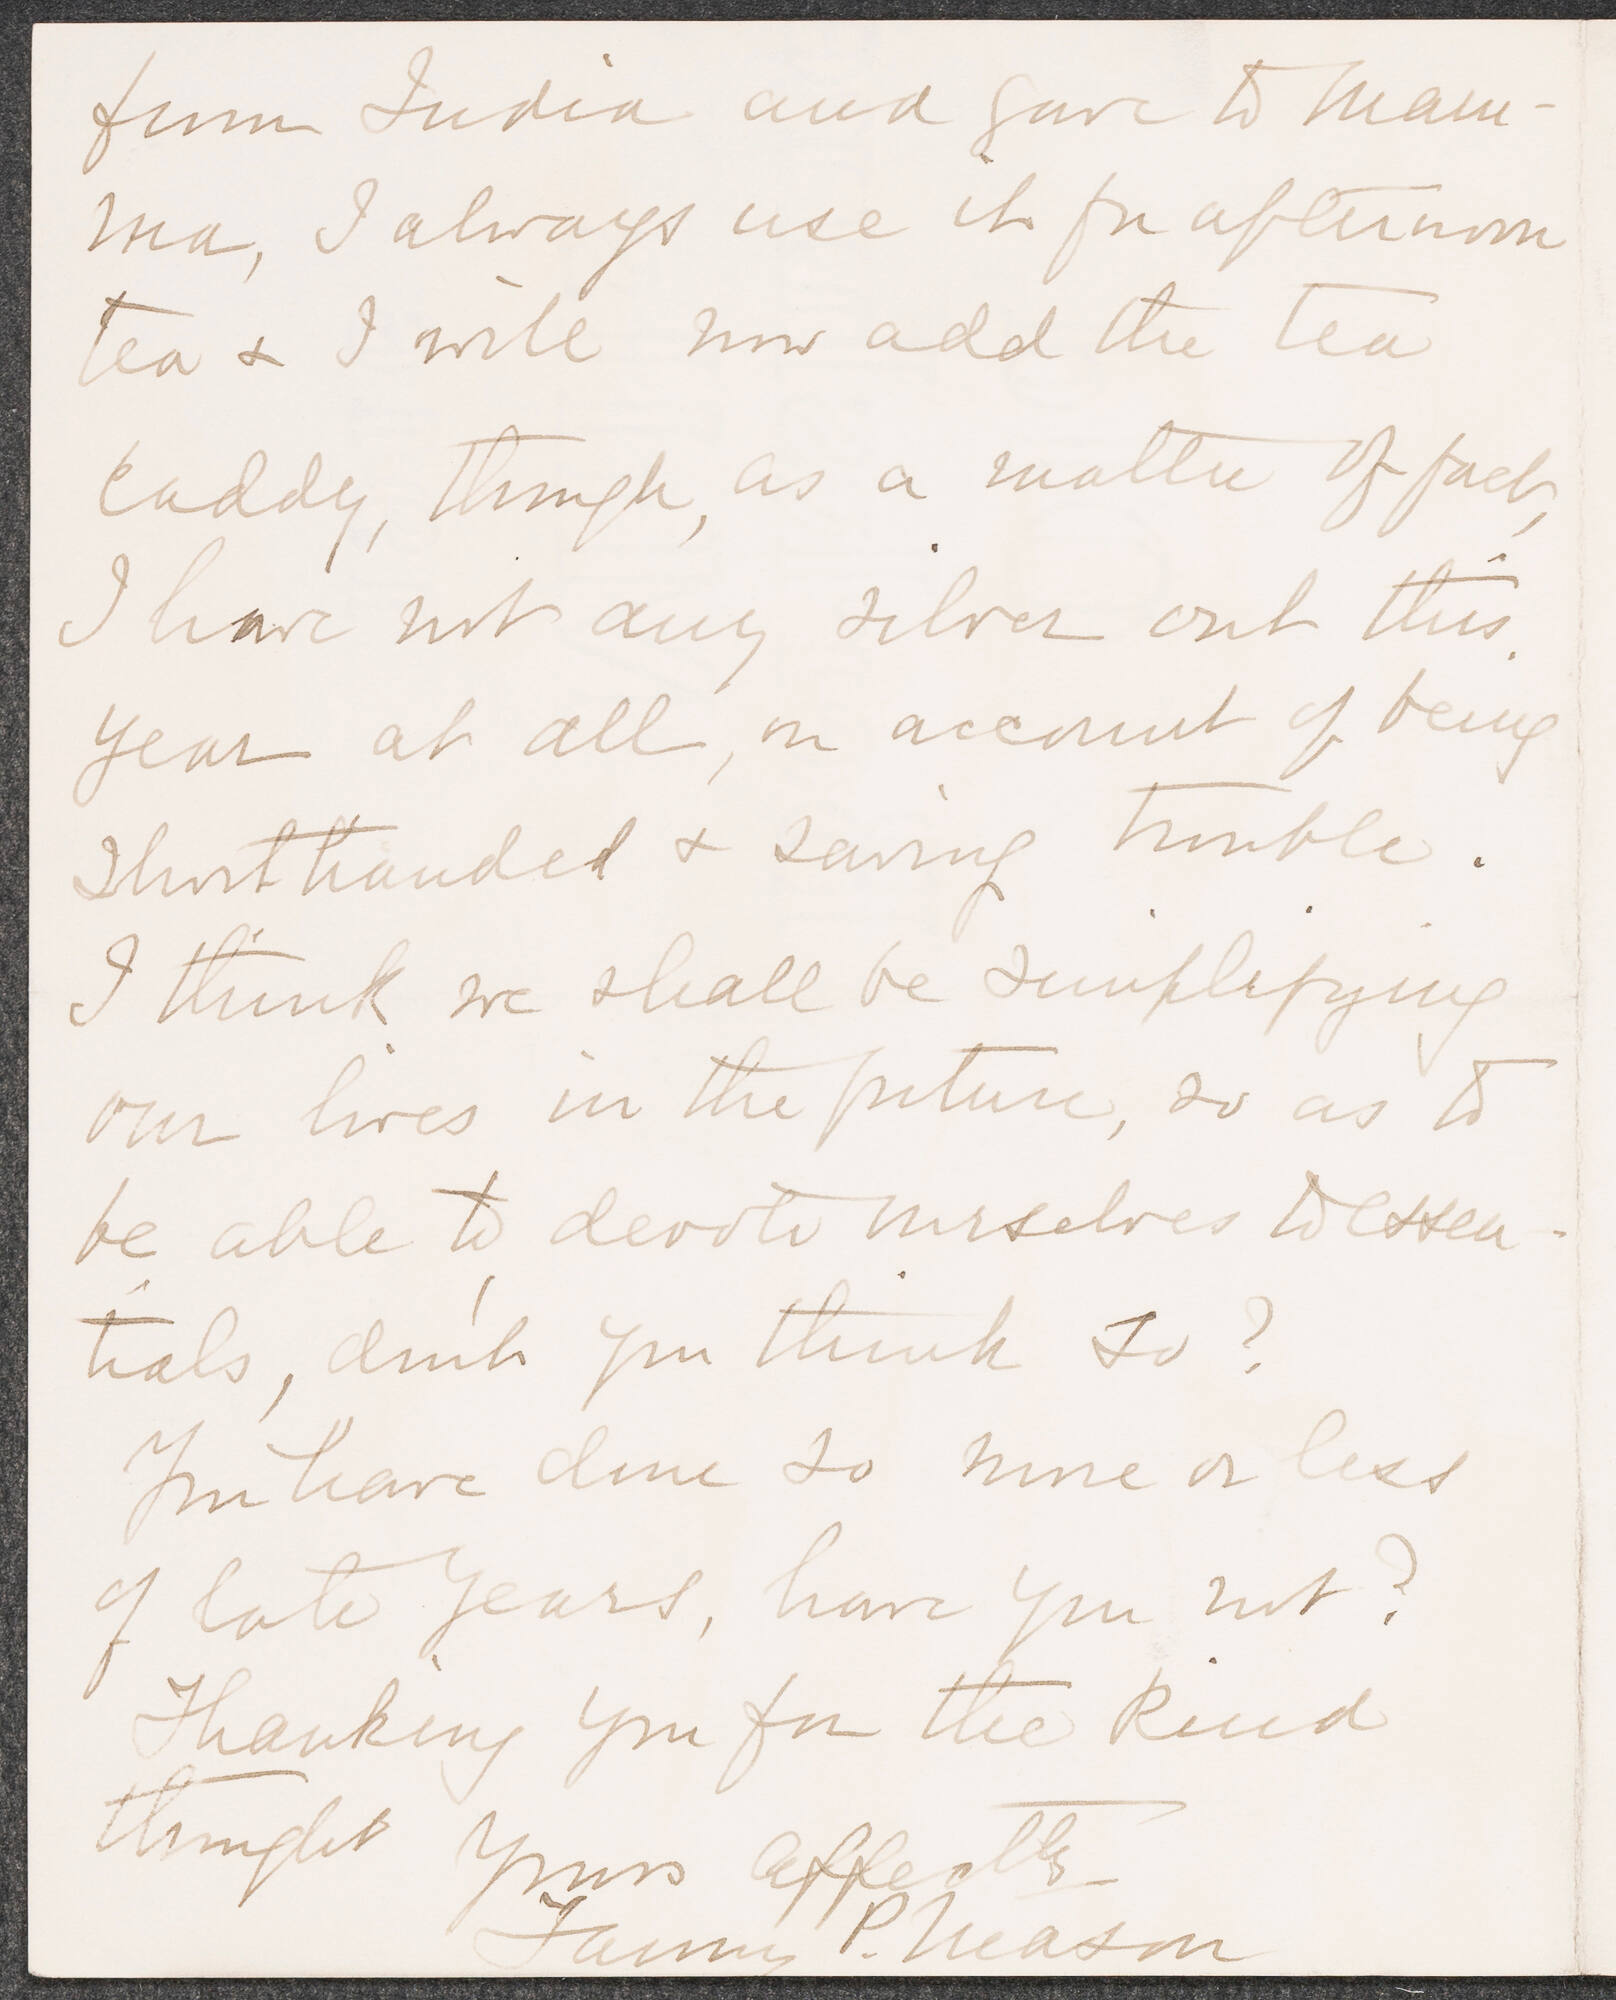 from India and gave to Mam-
ma, I always use it for afternoon
tea & I will now add the tea
caddy, though, as a matter of fact,
I have not any silver out this
year at all, on account of being
shorthanded & saving trouble.
I think we shall be simplifying
our lives in the future, so as to
be able to devote ourselves to essen-
tials, don't you think so?
You have done so more or less
of late years, have you not?
Thanking you for the kind
thought Yours affectly
Fanny P. Mason